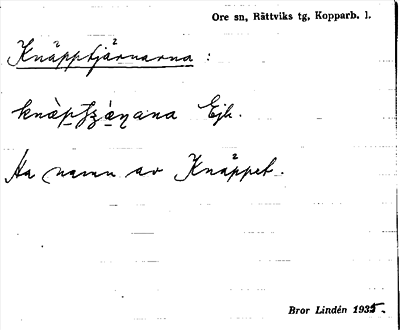 Ore sn, Rättviks tg, Kopparb. l.
Knäpptjärnarna :
Ejh.
Ha namn av Knäppet.
Bror Lindén 1935.